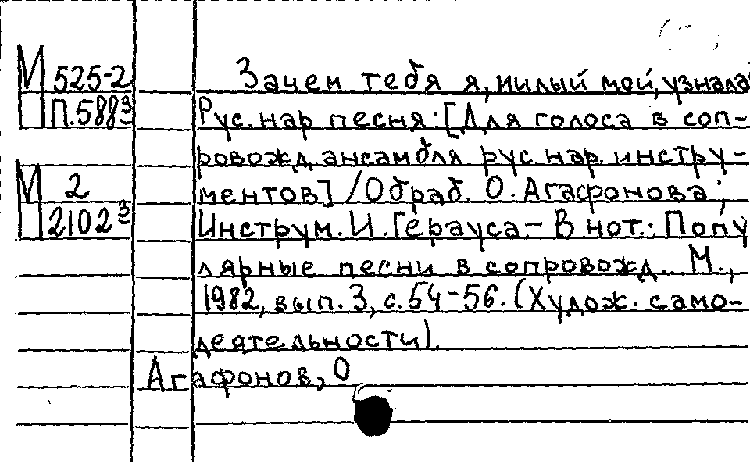 М 525-2
П П.588³
М 2
П 2102³
Зачем тебя я, милый мой, узнала
Рус. нар песня: [Для голоса в соп-
ровожд ансамбля рус нар. инстру-
ментов] / Обраб. О. Агафонова;
Инструм. И. Герауса.- В нот.: Попу
лярные песни в сопровожд. М.,
1982, вып. 3, с. 54-56. (Худож. само-
деятельности).
Агафонов, О